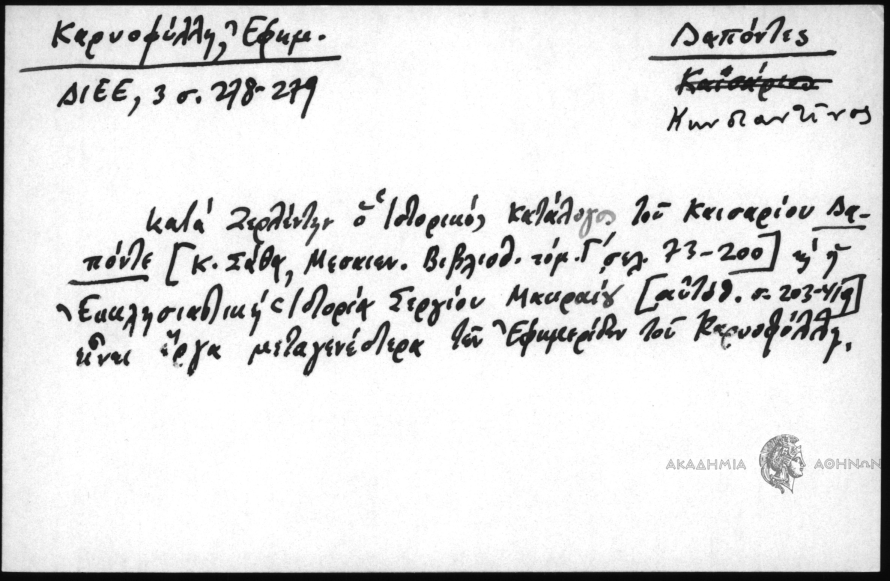 Καρυοφύλλη, Ἐφημ.
Δαπόντες
ΔΙΕΕ, 3 σ. 278-279
Καισάριος
Κωνσταντῖνος
κατά Ζερλέντην ὁ Ἱστορικός κατάλογος τοῦ Καισαρίου Δα-
πόντε [Κ. Σάθα, Μεσαιων. Βιβλιοθ. τόμ. Γ΄, σελ. 73-200] κ᾽ ἡ
Ἐκκλησιαστική Ἱστορία Σεργίου Μακραίου [αὐτόθ. σ. 203-419]
εἶναι ἔργα μεταγενέστερα τῶν Ἐφημερίδων τοῦ Καρυοφύλλη.
ΑΚΑΔΗΜΙΑ ΑΘΗΝΩΝ